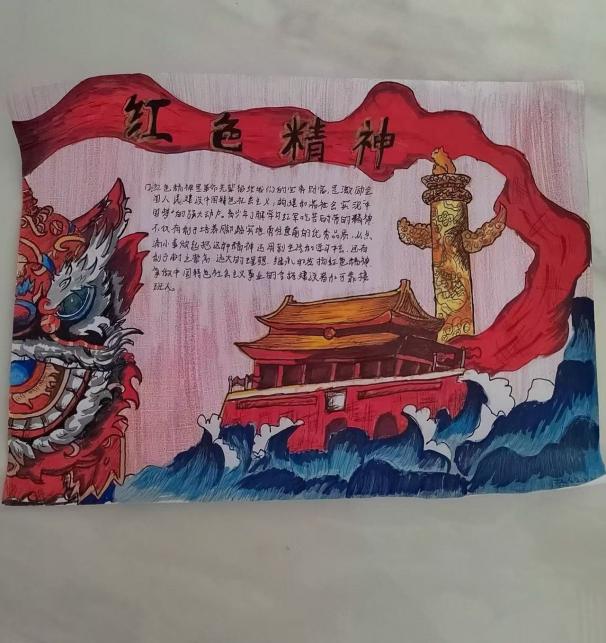 红色精神
红色精神是革命先辈留给我们的宝贵财富,是激励全
国人民建设中国特色社会主义,构建和谐社会实现中
国梦的强大动力。青少年了解学习红军吃苦耐劳的精神
不仅有利于培养脚踏实地勇担重角的优秀品质,从点
滴小事做起把这种精神运用到生活和学习中去,还有
利于树立崇高、远大的理想、继承和发扬红色精神
争做中国特色社会主义事业的合格建设者和可靠接
班人。